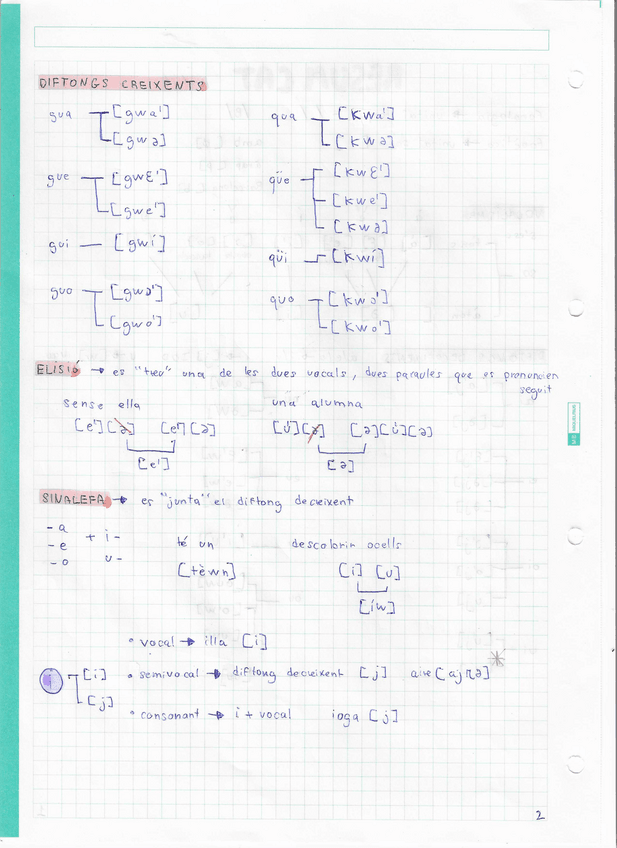 DIFTONGS CREIXENTS
gua [gwa'] qua [kwa']
[gwə] [kwə]
gue [gwɛ'] qüe [kwɛ']
[gwe'] [kwe']
[kwə]
gui [gwí] qüi [kwí]
guo [gwɔ'] quo [kwɔ']
[gwo'] [kwo']
ELISIÓ → es "treu" una de les dues vocals, dues paraules que es pronuncien
seguit
sense ella una alumna
[e'][ə] [e'][ə] [ú][ə] [ə][ú][ə]
[e'] [ə]
SINALEFA → es "junta" el diftong decreixent
-a + i-
-e u-
-o
té un descolorir ocells
[tèwn] [i] [u]
[íw]
• vocal → illa [i]
i [i] • semivocal → diftong decreixent [j] aire [ajɾə]
[j] • consonant → i + vocal ioga [j]
2